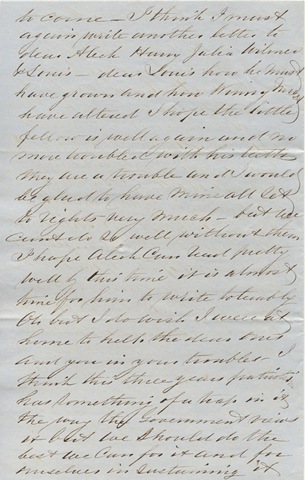 to come – I think I must
again write another letter to
dear Aleck Harry Julia Wilmer
& Louis – dear Louis how he must
have grown and how
have altered I hope the little
fellow is well again and no
more troubled with his teeth
they are a trouble and I would
be glad to have mine all set
to rights very much – but we
cant do as well without them
I hope Aleck can read pretty
well by this time it is almost
time for him to write tolerably
Oh but I do wish I were at
home to help the dear ones
and you in your troubles I
think this three years patriotic
has something of a trap in it
the way the Government view
it but we should do the
best we can for it and for
ourselves in sustaining it